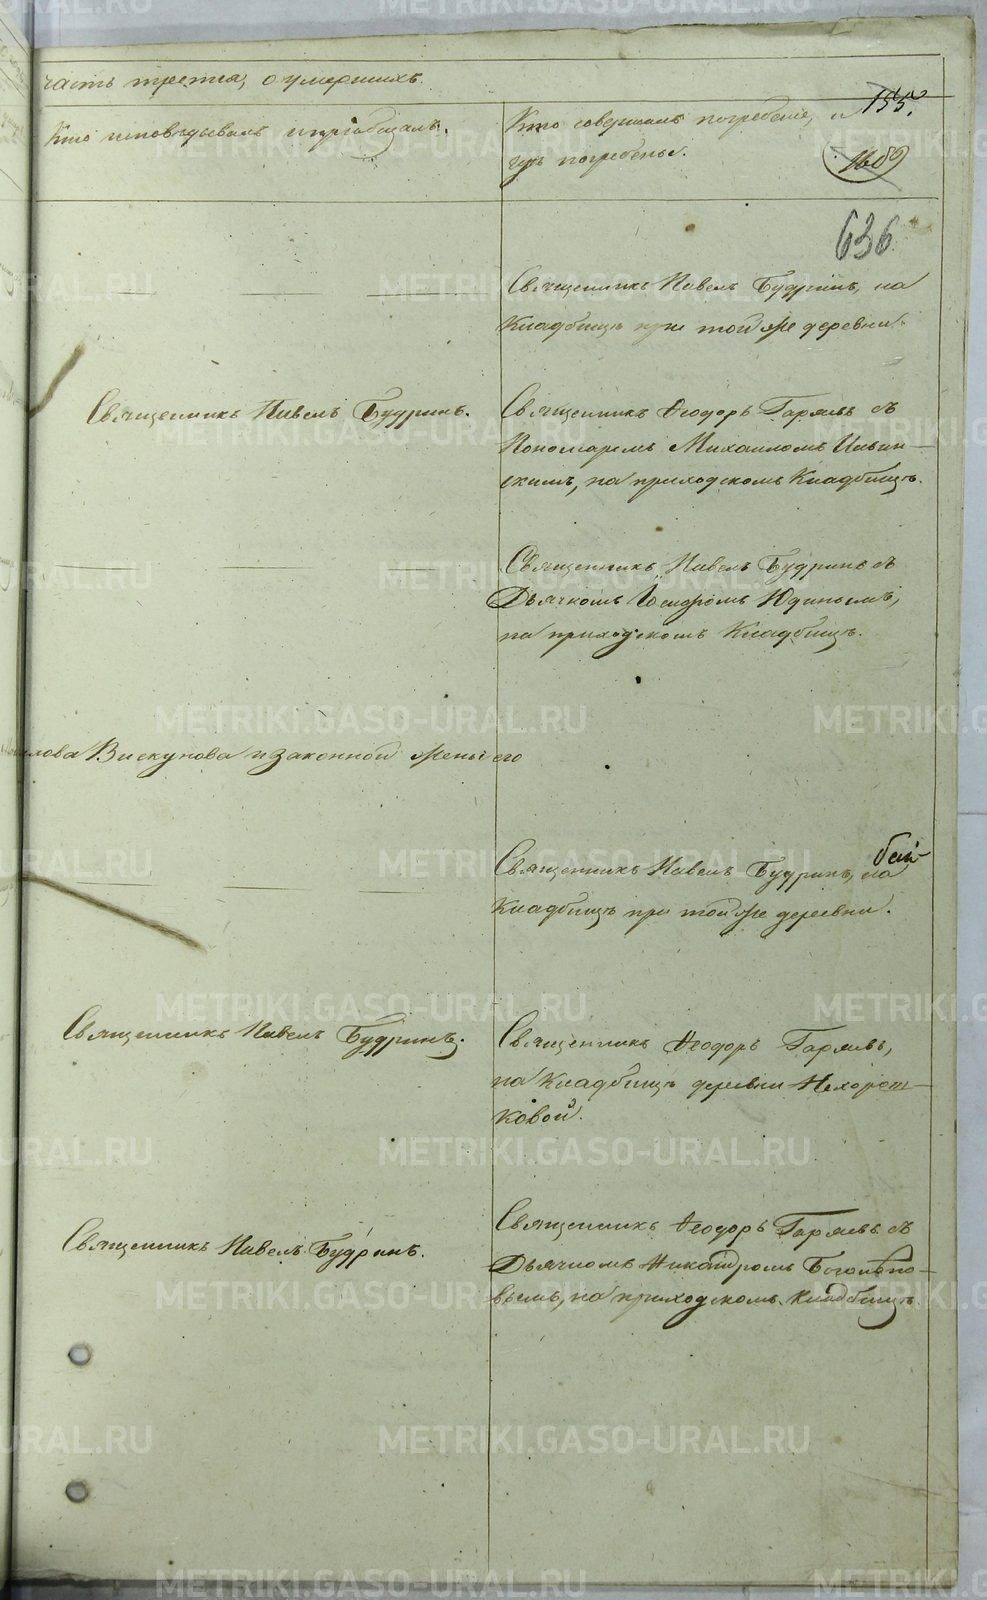 часть третья, о умершихъ.
Кто исповѣдывалъ и пріобщалъ.
Кто совершалъ погребеніе, и
гдѣ погребены.
155.
636
Священникъ Павелъ Будринъ, на
Кладбищѣ при той же деревни.
Священникъ Павелъ Будринъ.
Священникъ Ѳеодоръ Гаряевъ съ
Пономаремъ Михаиломъ
скимъ, на приходскомъ Кладбищѣ.
Священникъ Павелъ Будринъ съ
Дьячкомъ Іосифомъ Юдинымъ,
на приходскомъ Кладбищѣ.
лова Вискунова и законной жены его
Священникъ Павелъ Будринъ, на
Кладбищѣ при той же деревни.
Священникъ Павелъ Будринъ.
Священникъ Ѳеодоръ Гаряевъ,
на Кладбищѣ деревни Нехорош-
ковой.
Священникъ Павелъ Будринъ.
Священникъ Ѳеодоръ Гаряевъ съ
Дьячкомъ Никандромъ Боголѣпо-
вымъ, на приходскомъ Кладбищѣ.
METRIKI.GASO-URAL.RU